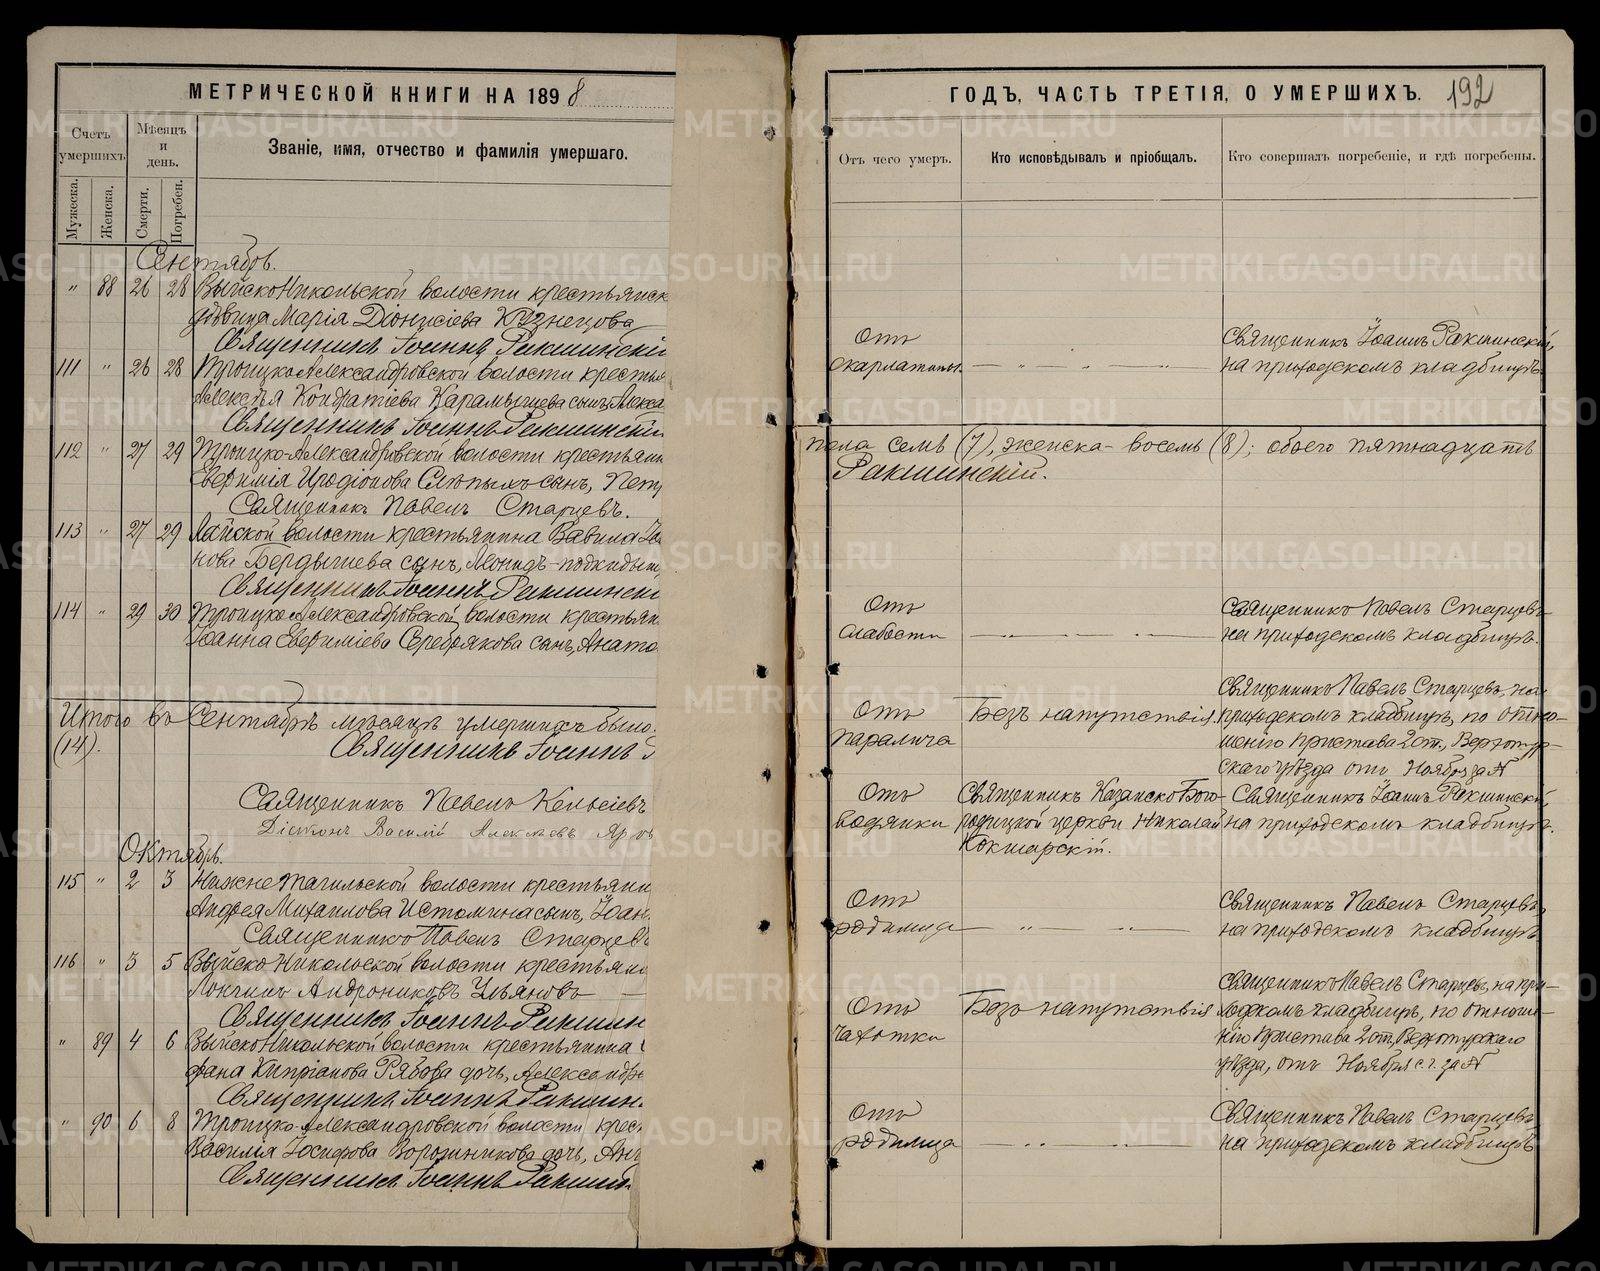 МЕТРИЧЕСКОЙ КНИГИ НА 1898
Счетъ умершихъ
Мѣсяцъ и день.
Званіе, имя, отчество и фамилія умершаго.
Мужеска.
Женска.
Смерти.
Погребен.
Сентябрь.
" 88 26 28 ВыйскоНикольской волости крестьянск
дѣвица Марія Діонисіева Кузнецова
Священникъ Іоаннъ Ракшинскій
111 " 26 28 ТроицкоАлександровской волости крестья
Алексѣя Кондратіева Карамышева сынъ, Алекса
Священникъ Іоаннъ Ракшинскій
112 " 27 29 Троицко-Александровской волости крестьяни
Евѳимія Иродіонова Слѣпыхъ сынъ, Петр
Священникъ Павелъ Старцевъ.
113 " 27 29 Лайской волости крестьянина Вавила Іоа
нова Бердышева сынъ, Леонидъ-подкидыш
Священникъ Іоаннъ Ракшинскі
114 " 29 30 ТроицкоАлександровской волости крестьян
Іоанна Евѳиміева Серебрякова сынъ, Анато
Итого въ Сентябрѣ мѣсяцѣ умершихъ было.
(14).
Священникъ Іоаннъ Р
Священникъ Павелъ
Діаконъ Василій Алексѣевъ
Октябрь.
115 " 2 3 НижнеТагильской волости крестьяни
Андрея Михаилова Истомина сынъ, Іоан
Священникъ Павелъ Старцевъ
116 " 3 5 ВыйскоНикольской волости крестьяни
Лонгинъ Андрониковъ Ульяновъ
Священникъ Іоаннъ Ракшин
" 89 4 6 ВыйскоНикольской волости крестьянина
фана Кипріанова Рябова дочь, Александр
Священникъ Іоаннъ Ракшин
" 90 6 8 Троицко-Александровской волости крес
Василія Іосифова Ворожникова дочь, Ан
Священникъ Іоаннъ Ракшин
ГОДЪ, ЧАСТЬ ТРЕТІЯ, О УМЕРШИХЪ. 192
Отъ чего умеръ.
Кто исповѣдывалъ и пріобщалъ.
Кто совершалъ погребеніе, и гдѣ погребены.
Отъ
скарлатины.
Священникъ Іоаннъ Ракшинскій,
на приходскомъ кладбищѣ.
пола семь (7), женска-восемь (8); обоего пятнадцать
Ракшинскій.
Отъ
слабости
Священникъ Павелъ Старцевъ
на приходскомъ кладбищѣ.
Отъ
паралича
Безъ напутствія.
Священникъ Павелъ Старцевъ, на
приходскомъ кладбищѣ, по отно-
шенію Пристава 2 ст., Верхотур-
скаго уѣзда отъ Ноября за №
Отъ
водянки
Священникъ Казанско Бого-
родицкой церкви Николай
Кокшарскій.
Священникъ Іоаннъ Ракшинскій
на приходскомъ кладбищѣ.
Отъ
родимца
Священникъ Павелъ Старцевъ,
на приходскомъ кладбищѣ
Отъ
чахотки
Безъ напутствія
Священникъ Павелъ Старцевъ, на при-
ходскомъ кладбищѣ, по отноше-
нію Пристава 2 ст, Верхотурскаго
уѣзда, отъ Ноября с. г. за №
Отъ
родимца
Священникъ Павелъ Старцевъ
на приходскомъ кладбищѣ
METRIKI.GASO-URAL.RU